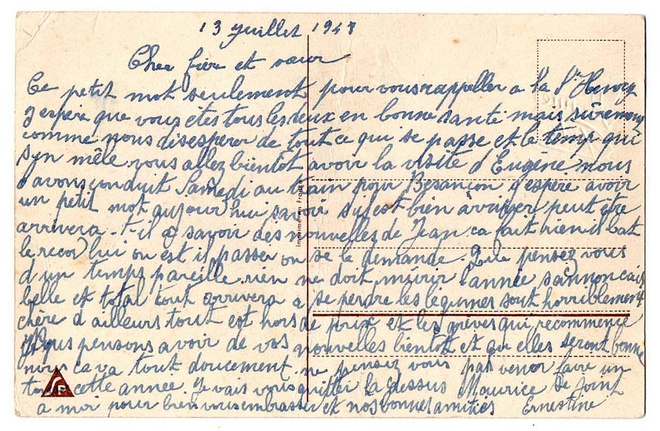 13 Juillet 1947
Cher frère et sœur
Ce petit mot seulement pour vous rappeller a la St Henry
J'espère que vous etes tous les deux en bonne santé mais surement
comme nous disesperer de tout ce qui se passe et le temps qui
s'yn mêle vous allez bientôt avoir la visite d'Eugène nous
l'avons conduit Samedi au train pour Besançon j'espère avoir
un petit mot aujourd'hui savoir s'il est bien arriver peut être
arrivera-t-il a savoir des nouvelles de Jean ca fait rien il bat
le record lui ou est il passer on se le demande. Que pensez vous
d'un temps pareille rien ne doit murir l'année s'annoncait
belle et total tout arrivera a se perdre les legumes sont horriblement
chère d'ailleurs tout est hors de prix et les grèves qui recommence
nous pensons avoir de vos nouvelles bientot et qu elles seront bonne
nous ca va tout doucement ne pensez vous pas venir faire un
tour cette année. Je vais vous quitter la dessus Maurice se joint
a moi pour bien vous embrasser et nos bonnes amitiés Ernestine